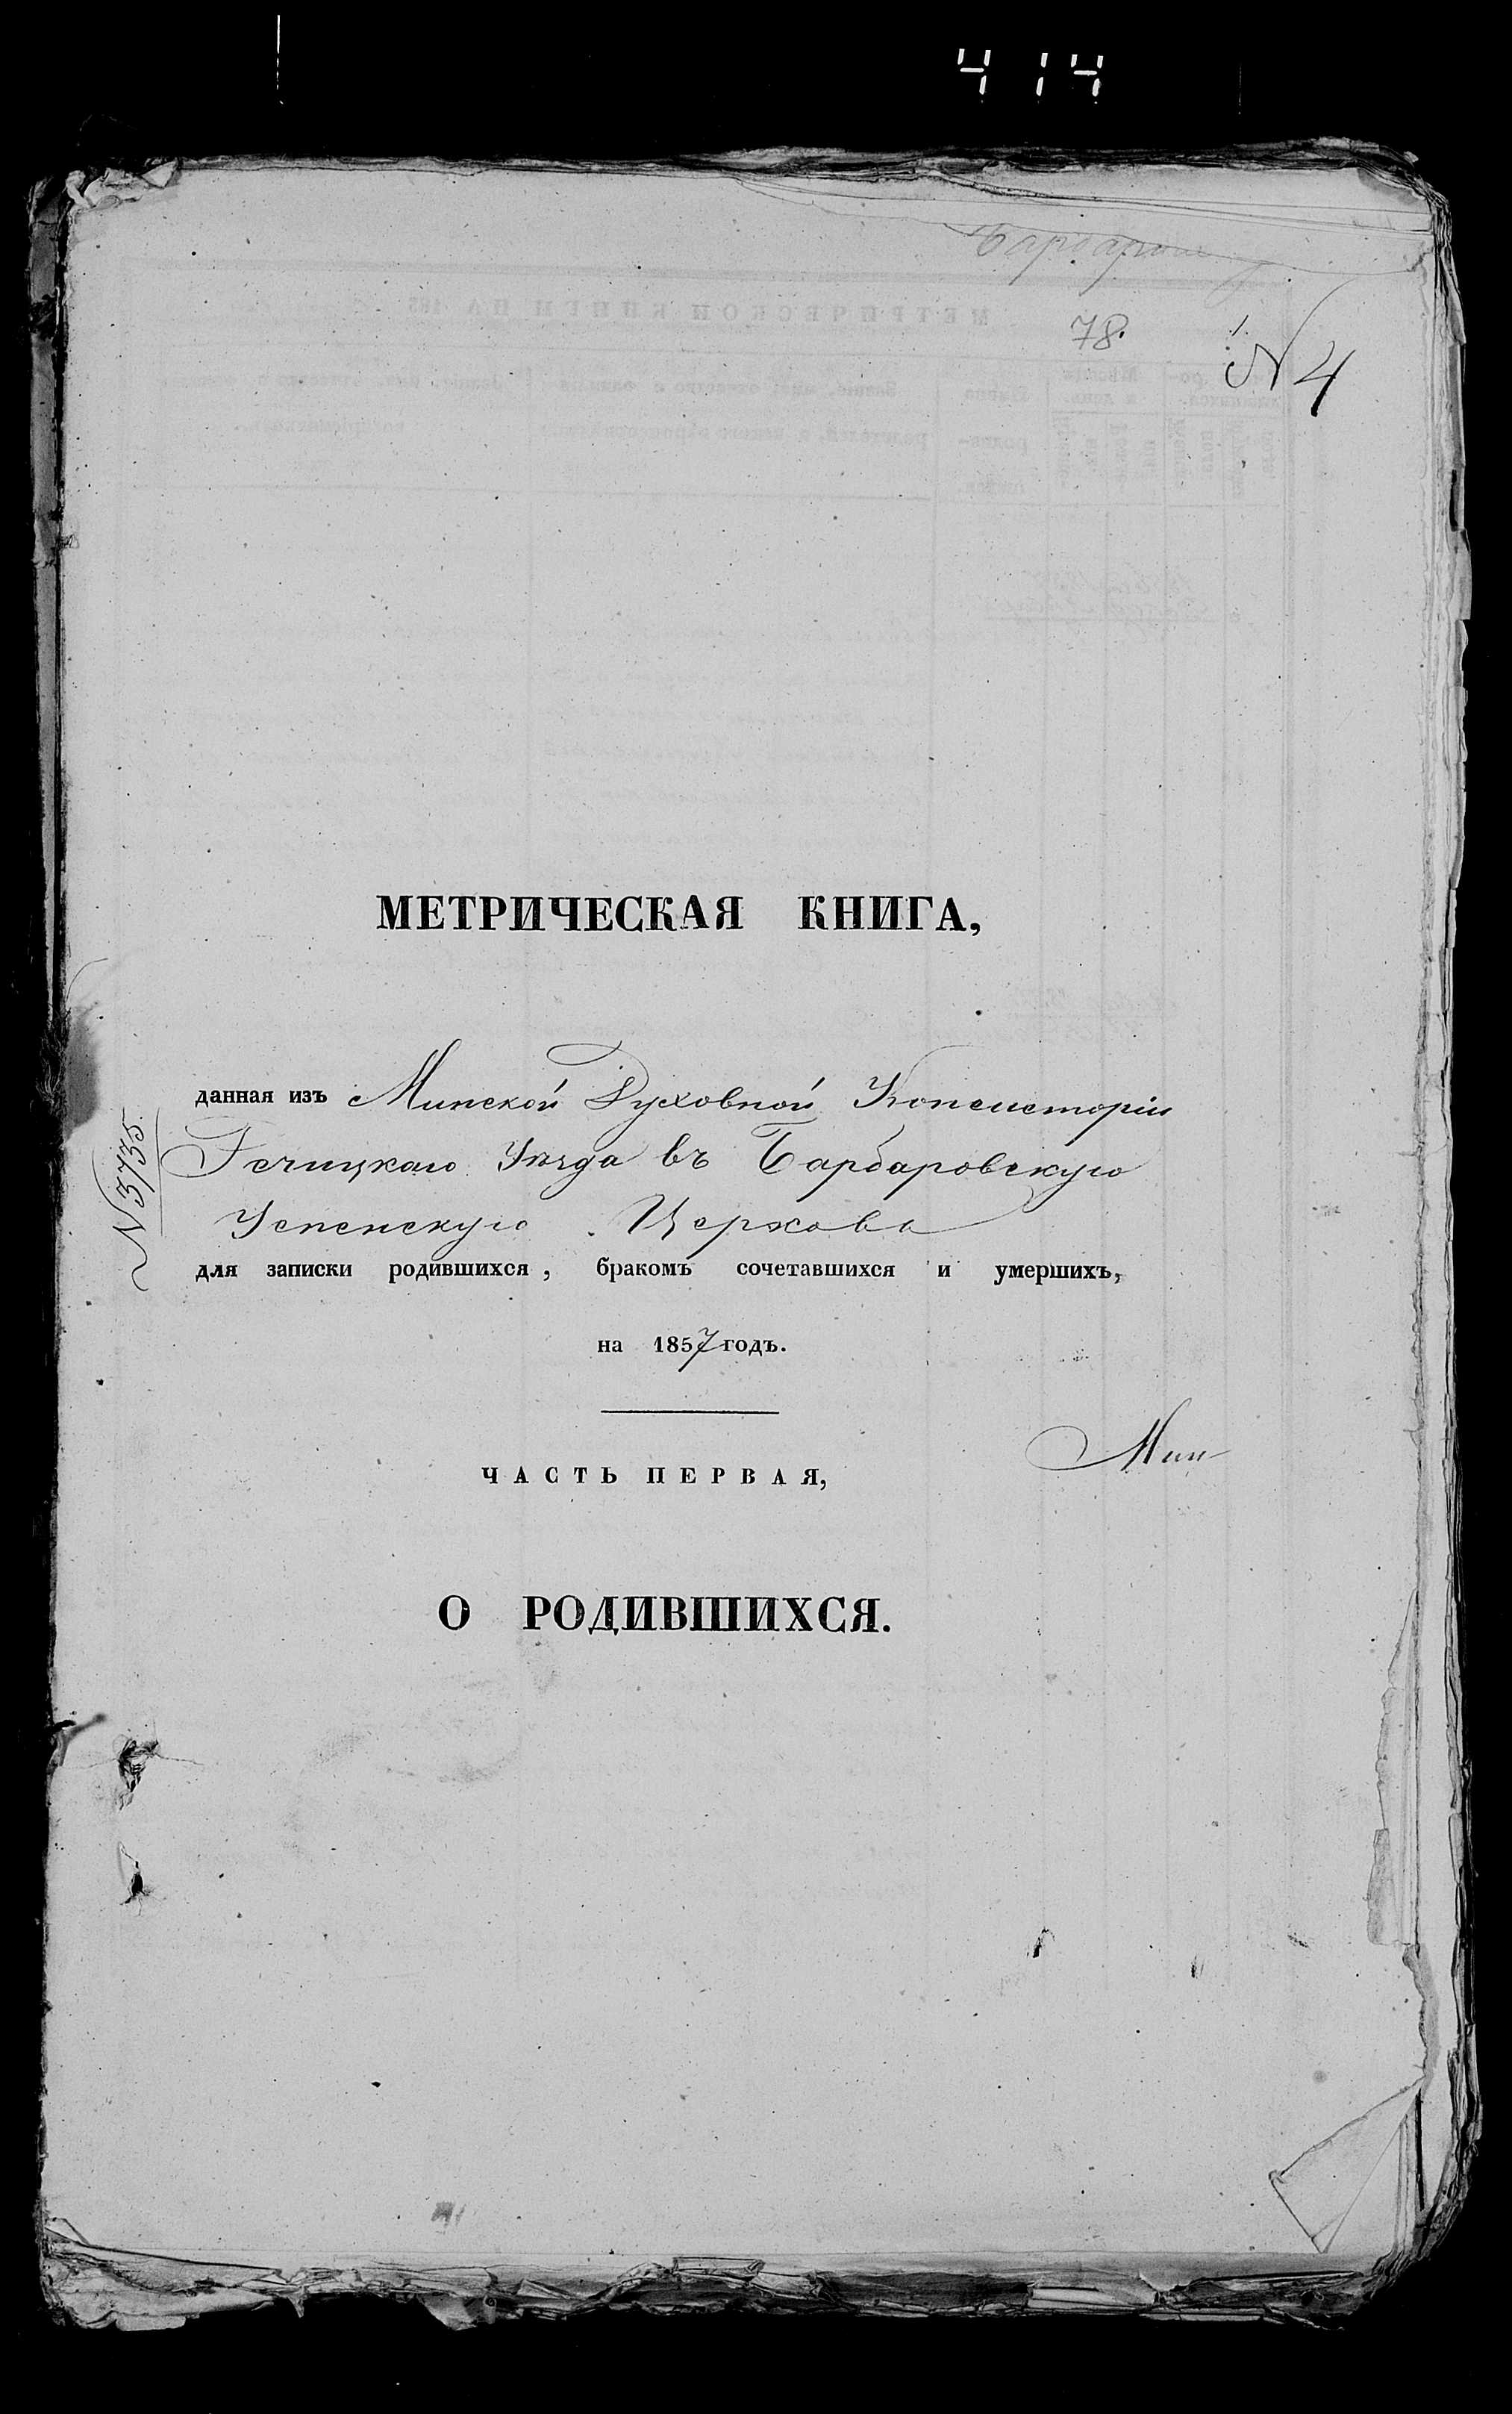 4 14
78.
N 4
МЕТРИЧЕСКАЯ КНИГА,
данная изъ Минской Духовной Консисторіи
Речицкаго Уѣзда въ Барбаровскую
Успенскую Церковь
N 3735
для записки родившихся, бракомъ сочетавшихся и умершихъ,
на 1857 годъ.
Мин
ЧАСТЬ ПЕРВАЯ,
О РОДИВШИХСЯ.